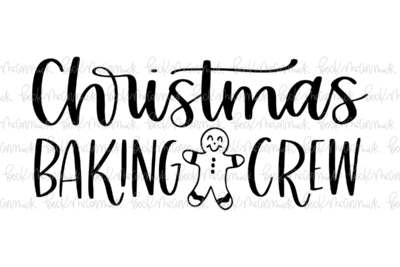 Christmas
BAKING CREW